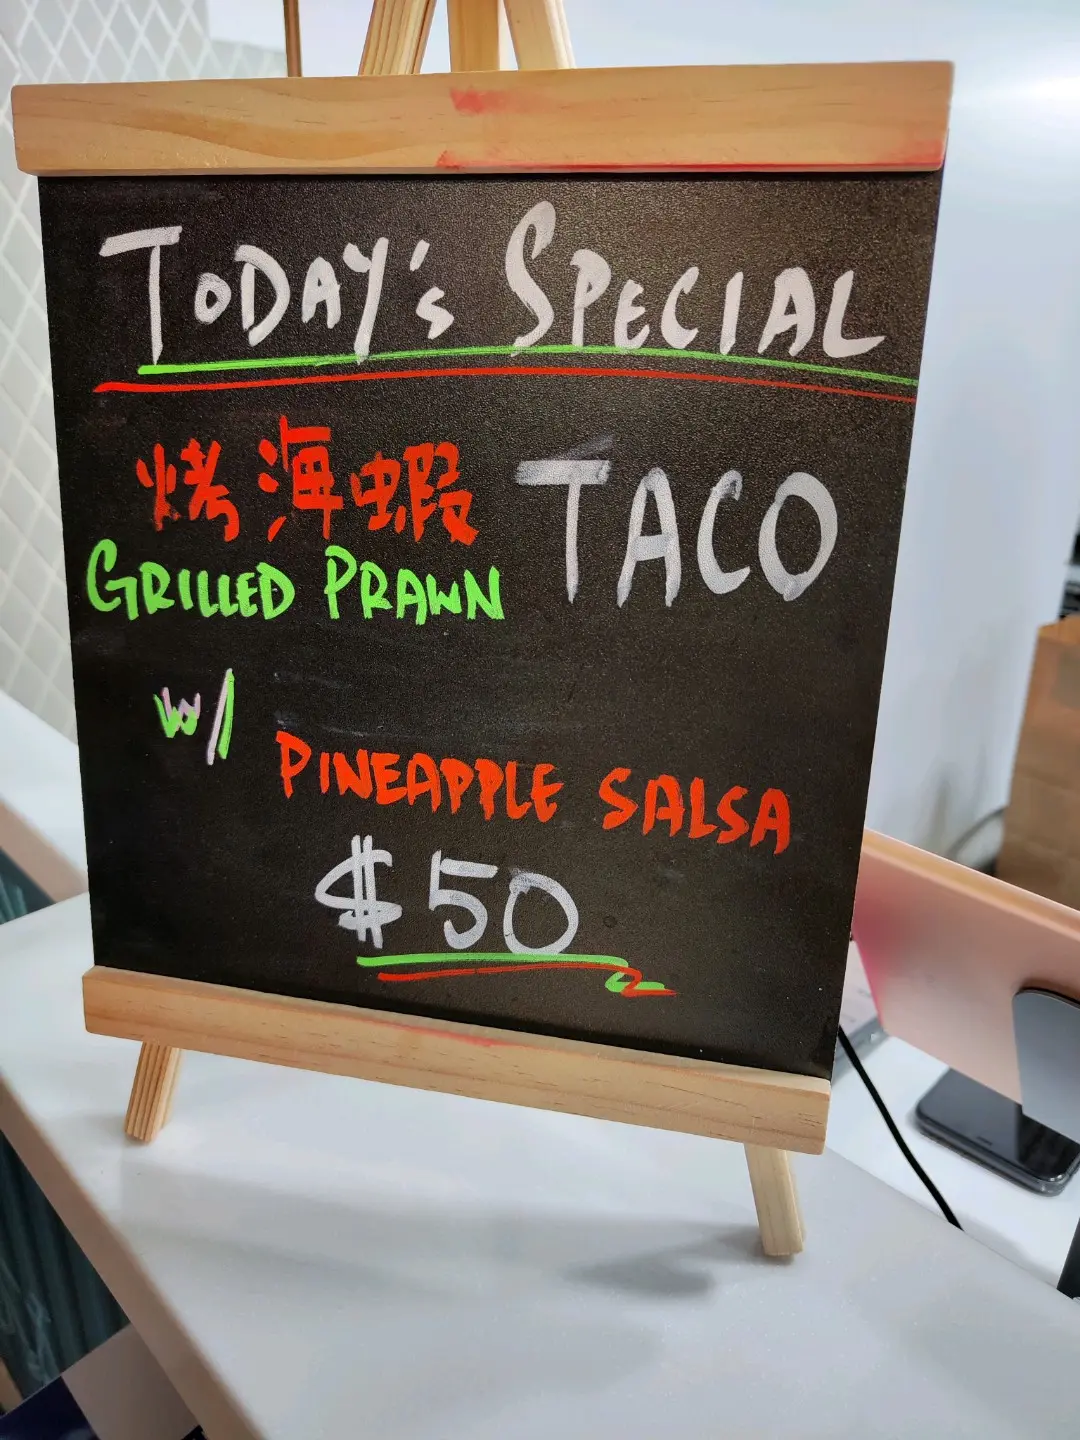 TODAY'S SPECIAL
烤海蝦 TACO
GRILLED PRAWN
W/
PINEAPPLE SALSA
$50